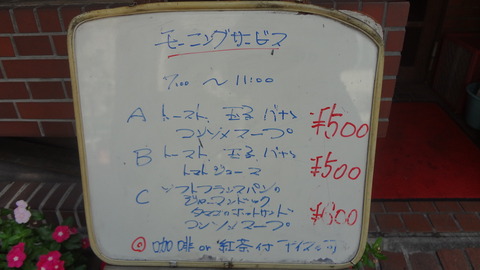 モーニングサービス
7:00 〜 11:00
A トースト 玉子 バナナ
コンソメスープ。 ¥500
B トースト 玉子 バナナ
トマトジュース ¥500
C ソフトフランスパンの
ジャーマンドック
タマゴのホットサンド
コンソメスープ。 ¥600
◎ 珈琲 or 紅茶付